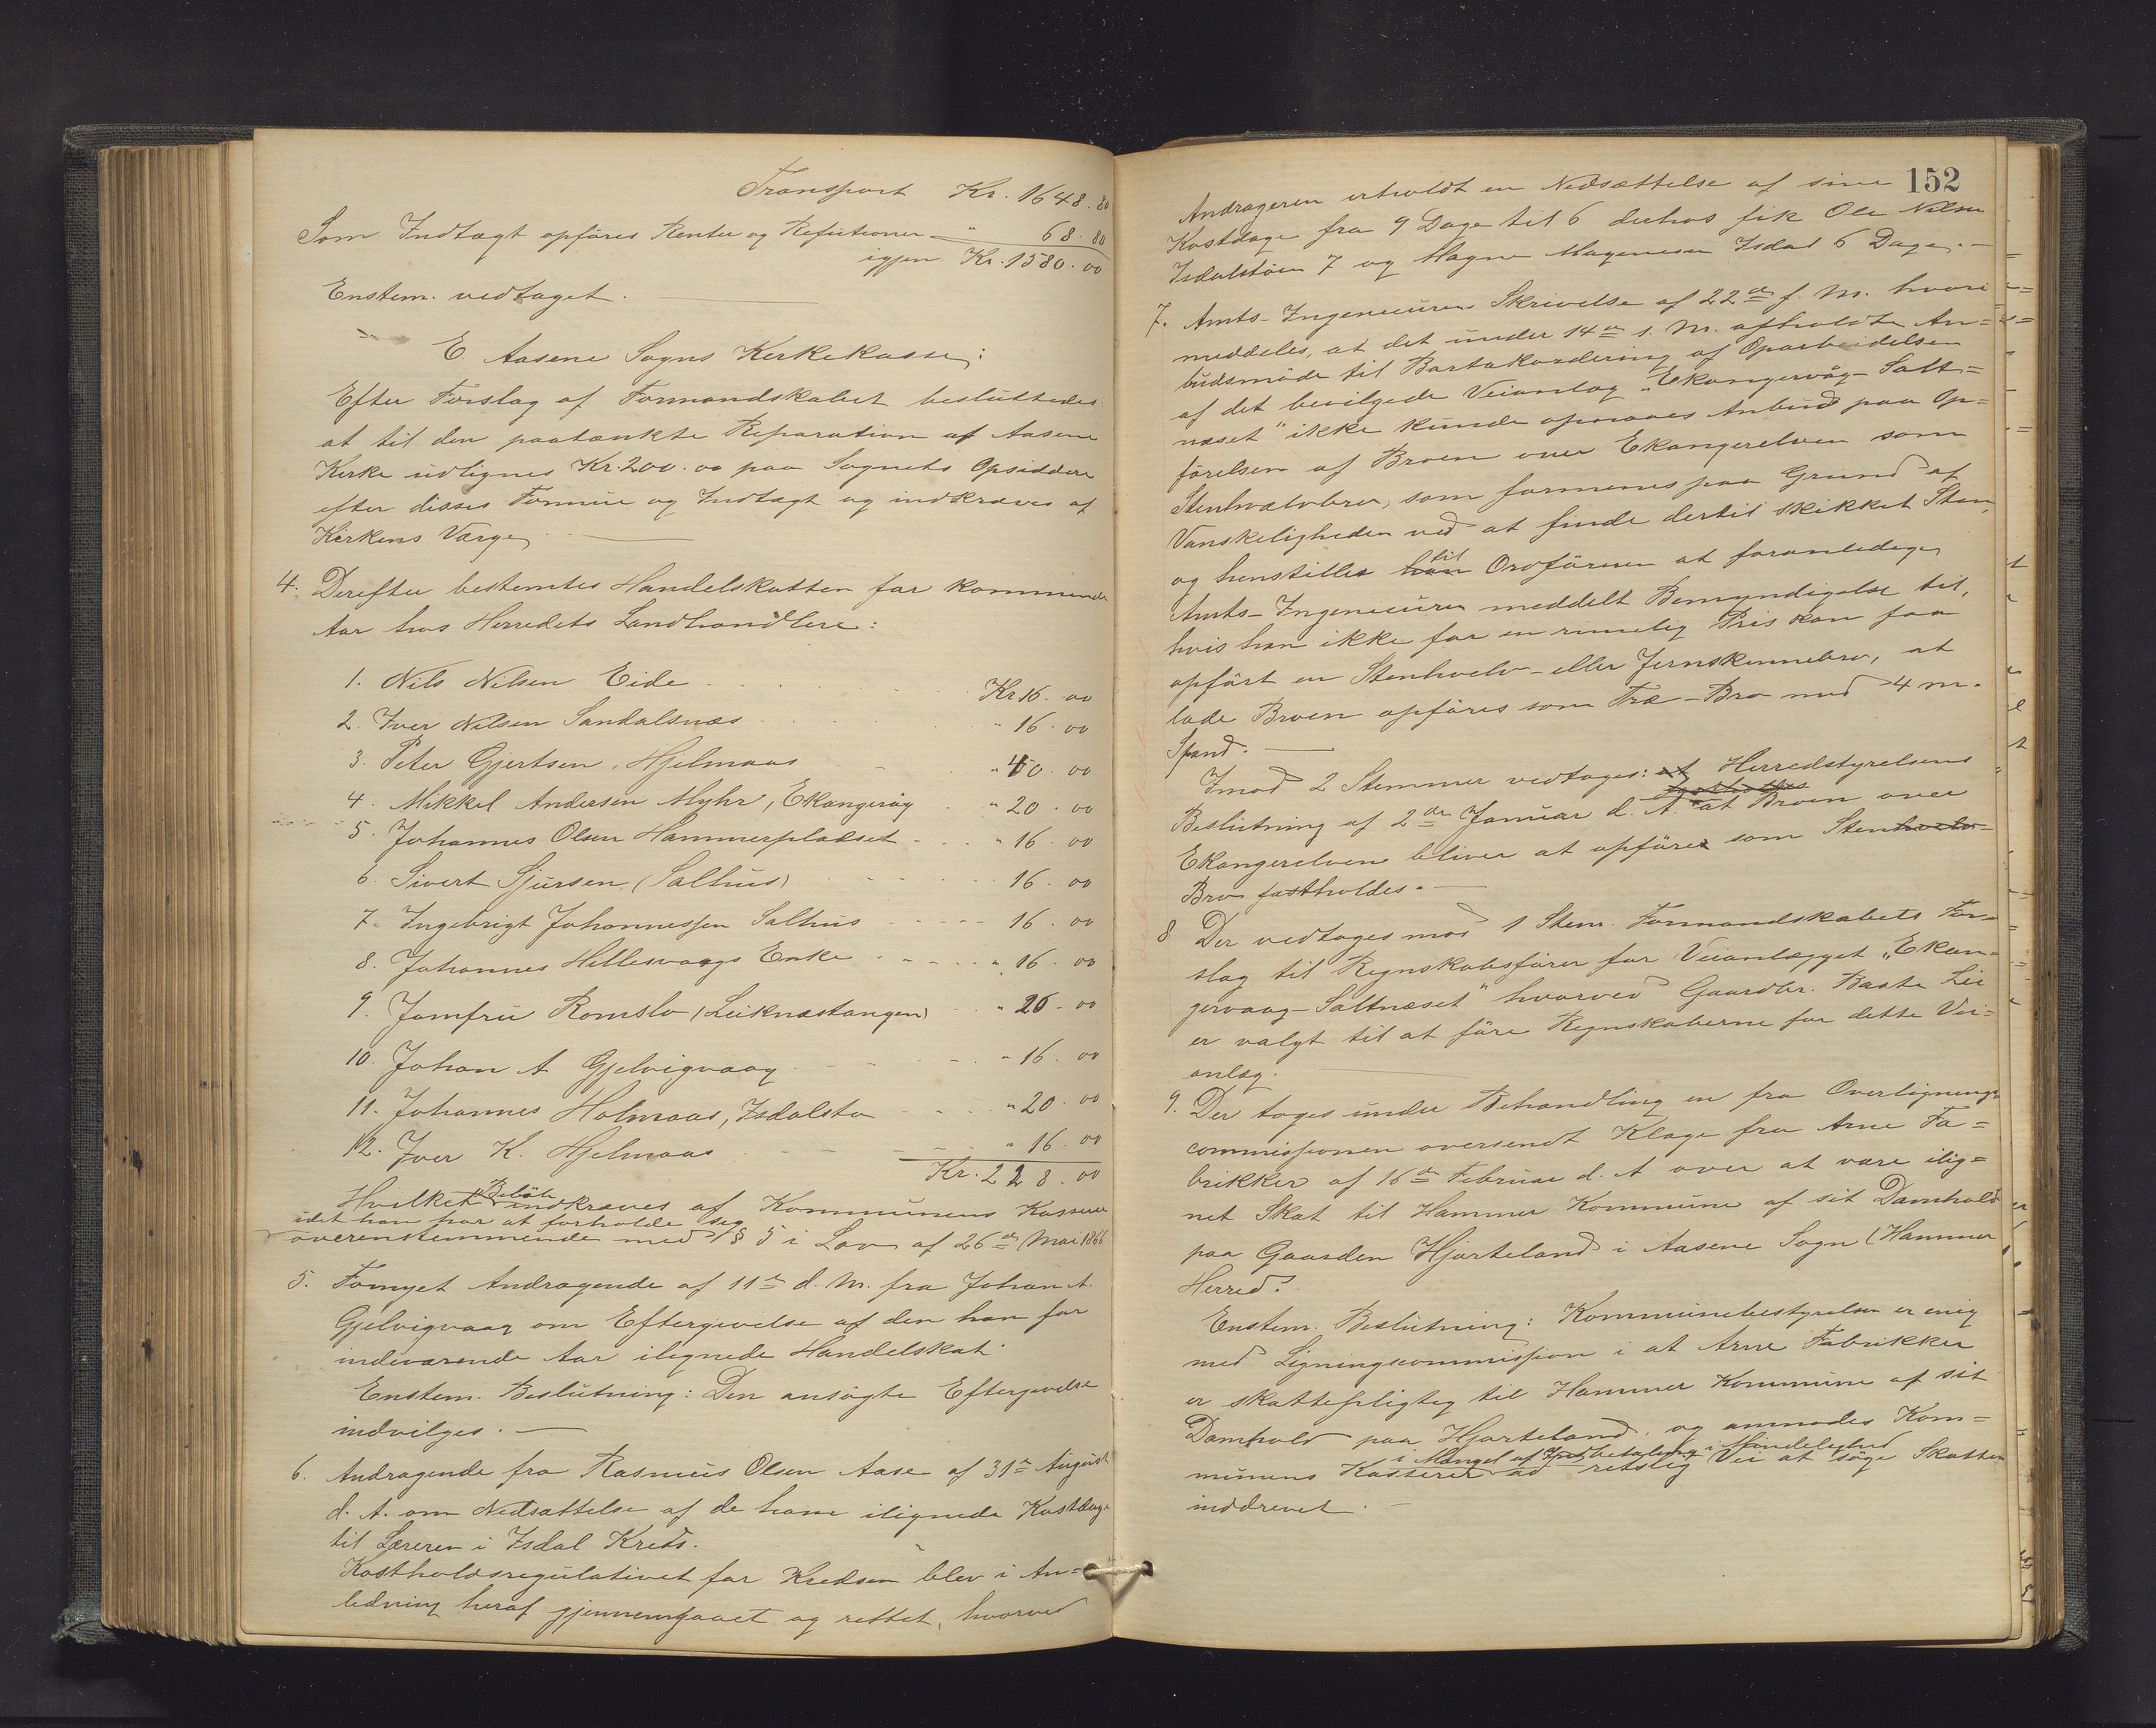 Transport Kr. 1648.80
Som Indtægt opföres Renter og Refusioner - " 68.80
igjen Kr. 1580.00
Enstem. vedtaget.
E. Aasene Sogns Kirkekasse:
Efter Forslag af Formandskabet besluttedes
at til den paatænkte Reparation af Aasene
Kirke udlignes Kr. 200.00 paa Sognets Opsiddere
efter disses Formue og Indtægt og indkræves af
Kirkens Værge.
4. Derefter bestemtes Handelskatten for kommende
Aar hos Herredets Landhandlere:
1. Nils Nilsen Eide Kr 16.00
2. Iver Nilsen Sandalsnæs " 16.00
3. Peter Gjertsen, Hjelmaas " 40.00
4. Mikkel Andersen Myhr, Ekangervåg " 20.00
5. Johannes Olsen Hammerpladset " 16.00
6. Sivert Sjursen (Salhus) 16.00
7. Ingebrigt Johannessen Salhus 16.00
8. Johannes Hillesvaags Enke " 16.00
9. Jomfru Romslo (Leiknestangen) " 20.00
10. Johan A Gjelvigvaag " 16.00
11. Johannes Holmaas, Isdalstø " 20.00
12. Iver K. Hjelmaas " 16.00
Kr. 228.00
Hvilket Belöb indkræves af Kommunens Kasserer
idet han har at forholde sig
overenstemmende med § 5 i Lov af 26de Mai 1866
5. Fornyet Andragende af 11te d. M. fra Johan A.
Gjelvigvaag om Eftergivelse af den ham for
indeværende Aar ilignede Handelskat.
Enstem. Beslutning: Den ansögte Eftergivelse
indvilges.
6. Andragende fra Rasmus Olsen Aase af 31te August
d. A. om Nedsættelse af de ham ilignede Kostdage
til Læreren i Isdal Kreds.
Kostholdsregulativet for Kredsen blev i An=
ledning heraf gjennemgaaet og rettet, hvorved
152
Andrageren erholdt en Nedsættelse af sine
Kostdage fra 9 Dage til 6 derhos fik Ole Nilsen
Isdalstöen 7 og Magne Magnesen Isdal 6 Dage.
7. Amts-Ingenieurens Skrivelse af 22de f. M. hvori
meddeles, at det under 14de s. M. afholdte An=
budsmöde til Bortakordering af Oparbeidelsen
af det bevilgede Veianlæg "Ekangervåg-Salt=
næset" ikke kunde opnaaes Anbud paa Op=
förelsen af Broen over Ekangerelven som
Stenhvælvbro, som formenes paa Grund af
Vanskeligheden ved at finde dertil skikket Sten,
og henstilles til Ordföreren at foranlediges
Amts-Ingenieuren meddelt Bemyndigelse til,
hvis han ikke for en rimelig Pris kan faa
opfört en Stenhvelv- eller Jernskinnebro, at
lade Broen opföres som Træ-Bro med 4 m.
Spand.
Imod 2 Stemmer vedtoges: at Herredstyrelsens
fastholdes
Beslutning af 2den Januar d. A. at Broen over
Ekangerelven bliver at opföre som Stenhvelv-
Bro fastholdes.
8 Der vedtoges mod 1 Stem. Formandskabets For=
slag til Regnskabsförer for Veianlægget "Ekan=
gervaag-Saltnæset" hvorved Gaardbr. Baste Lie
er valgt til at före Regnskaberne for dette Vei=
anlæg.
9. Der toges under Behandling en fra Overlignings
commissionen oversendt Klage fra Arne Fa=
brikker af 16de Februar d. A over at være ilig=
net Skat til Hammer Kommune af sit Damhold
paa Gaarden Hjorteland i Aasene Sogn (Hammer
Herred.
Enstem. Beslutning: Kommunebestyrelsen er enig
med Ligningscommission i at Arne Fabrikker
er skattepligtig til Hammer Kommune af sit
Damhold paa Hjorteland, og anmodes Kom=
i Mangel af Indbetaling i Mindelighed
munens Kasserer ad retslig Vei at söge Skatten
inddrevet.